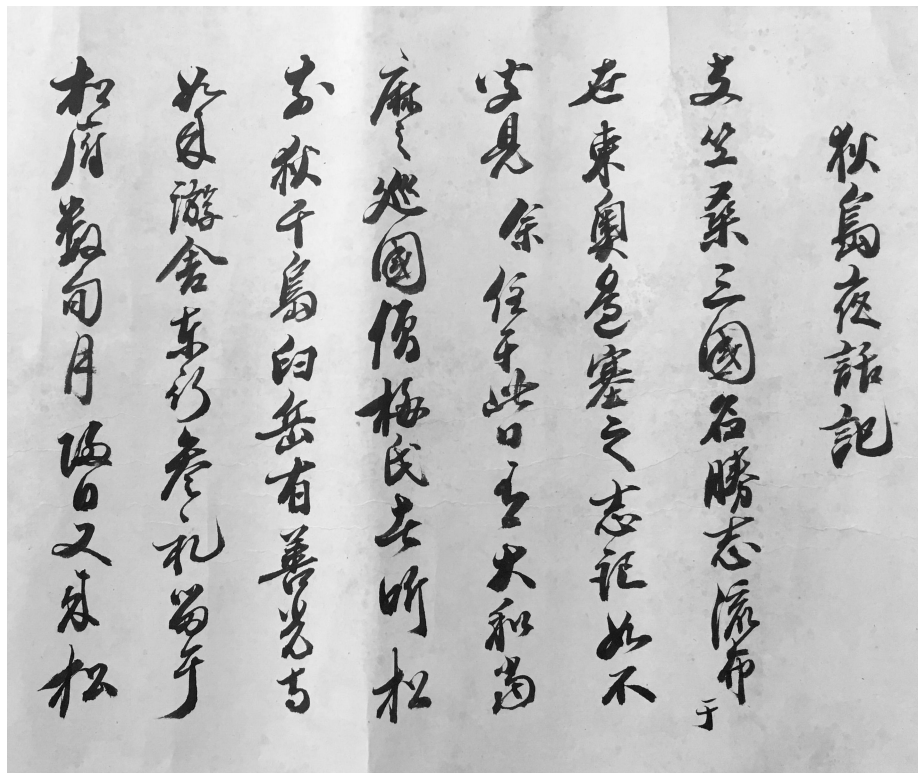 狄島夜話記
支竺桑三國名勝志流布于
世東奥邑塞之志記如不
曽見余住于此日有大和尚
麼々巡國僧梅氏者昕松
前狄千島臼岳有善光寺
如来游舎東行叅々礼留于
松府数旬月陽日又来松